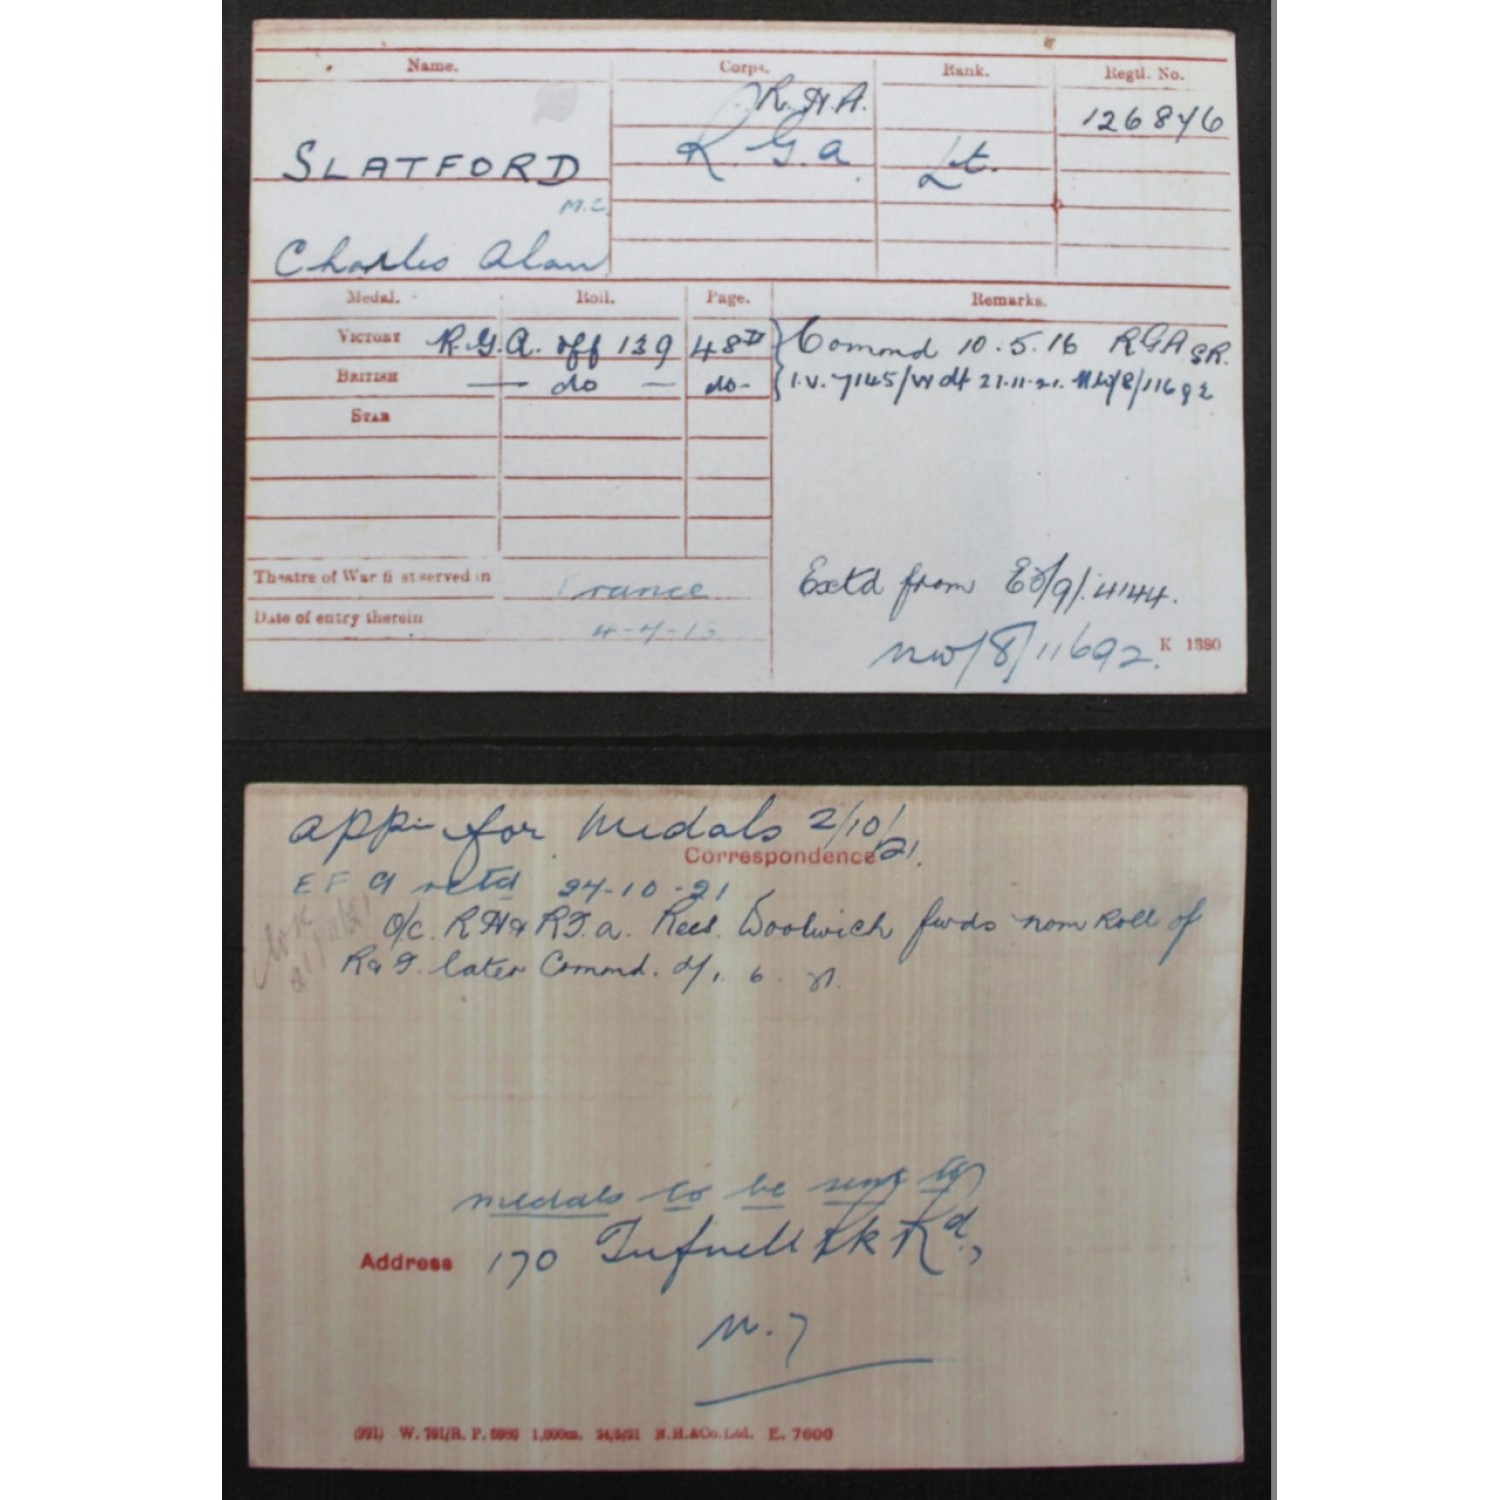 Name. Corps. Rank. Regtl. No.
R.H.A. 126876
SLATFORD R.G.A. Lt.
M.C.
Charles Alan
Medal. Roll. Page. Remarks.
VICTORY R.G.A. off 139 48D Comond 10.5.16 RGA SR.
BRITISH — do — do- I.V. 7145/W dt 21.11.21. NW/8/11692
STAR
Theatre of War first served in France
Date of entry therein 4-7-16
Extd from EO/9/4144.
NW/8/11692. K 1380
Appn for Medals 2/10/21.
Correspondence
E F 9 retd 24-10-21
O/c. RH & R.F.A. Recs. Woolwich fwds nom Roll of
R & F. later Commd. d/1. 6. 21.
medals to be sent to
Address 170 Tufnell Pk Rd.,
N. 7
(991) W. 701/R. P. 6980 1,000m. 24/5/21 H.H.&Co.Ltd. E. 7600